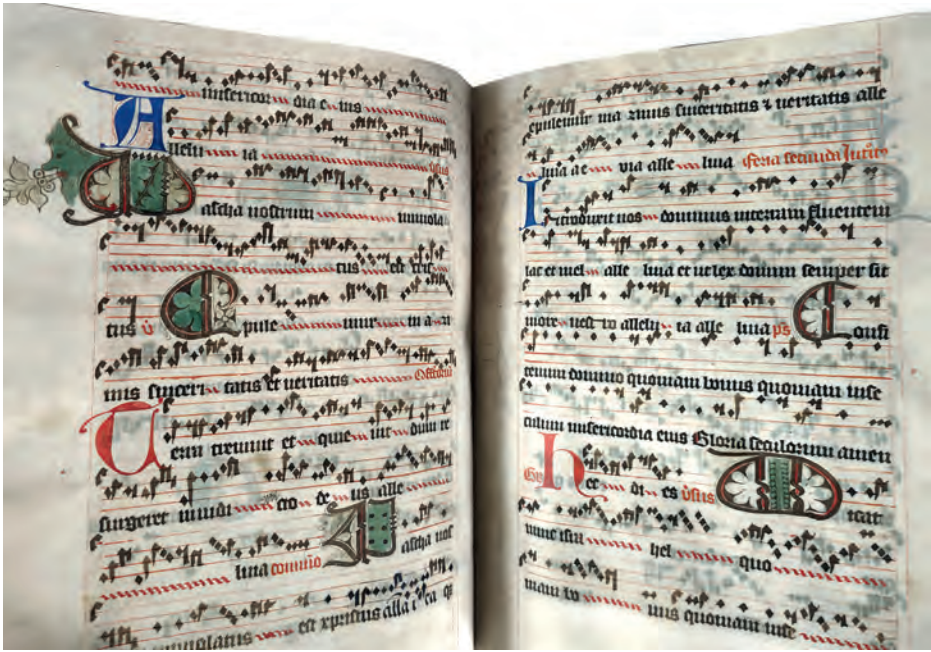 misericor dia e ius
A llelu ia v̄sus
P ascha nostrum immola
tus est cris
tus v̄ E pule mur in a zi
mis sinceri tatis et ueritatis Offertoriū
T erra tremuit et quie uit dum re
surgeret iniudi cio de us alle
luia com̄io P ascha nos
immolatus est xpristus all̄a ita q̄
epulemur in a zimis sinceritatis ⁊ ueritatis alle
luia al e luia alle luia feria secunda Introit̄
I ntroduxit uos dominus interram fluentem
lac et mel alle luia et ut lex domini semper sit
inore uestro allelu ia alle luia ps̄ C onfi
temini domino quoniam bonus quoniam inse
culum misericordia eius Gloria seculorum amen
Gr̄ H ec di es v̄sus D icat
nunc isra hel quo
niam bo nus quoniam inse